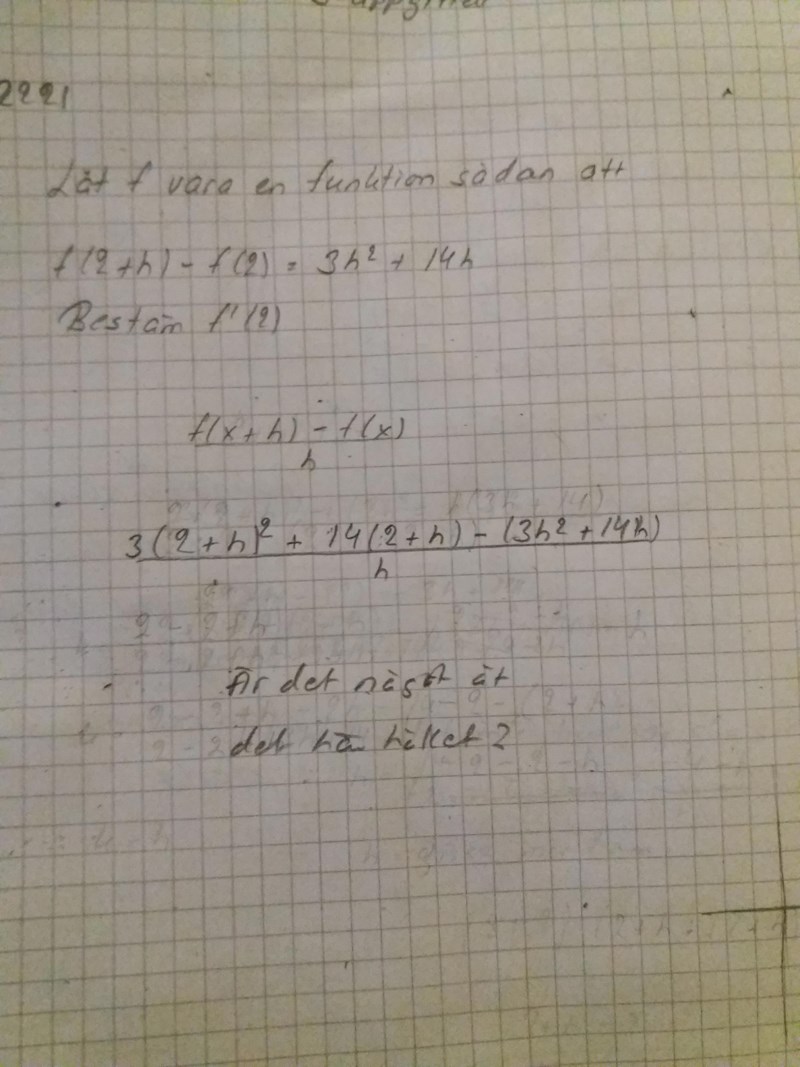 2221
Låt f vara en funktion sådan att
f(2+h) - f(2) = 3h² + 14h
Bestäm f'(2)
f(x+h) - f(x)
h
3(2+h)² + 14(2+h) - (3h² + 14h)
h
Är det något åt
det hä hållet?